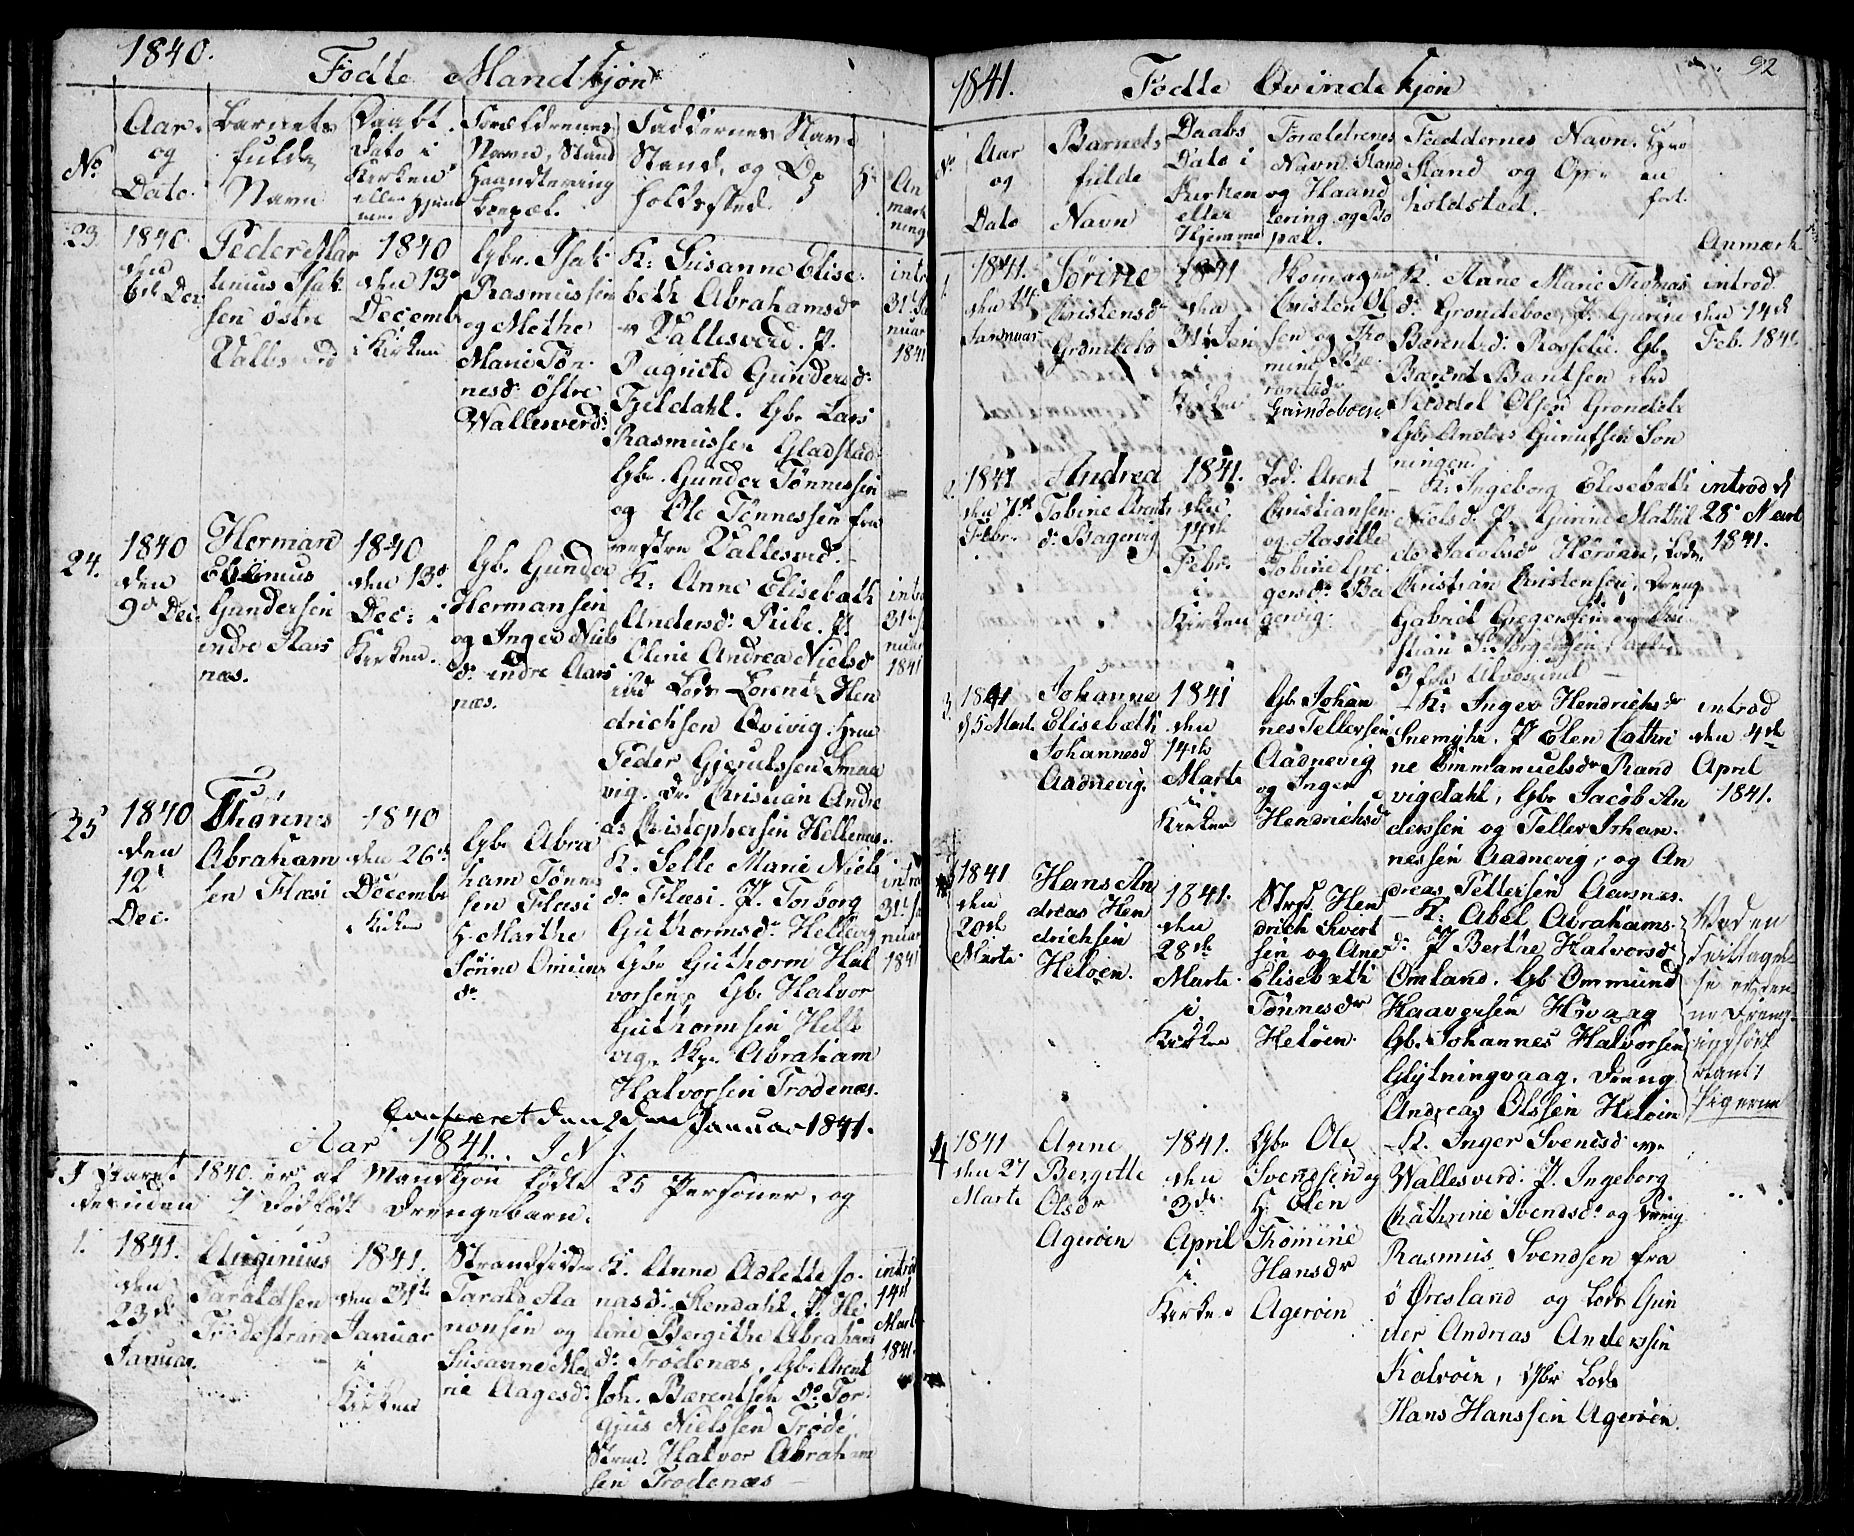 1840.
Fødte Mandkjøn
No
Aar
og
Dato.
Barnets
fulde
Navn
Daabs
Dato i
Kirken
eller Hjemme
Forældrenes
Navn, Stand
Haandtering
Bopæl.
Faddernes Navn
Stand, og Op
holdssted.
An
mærk
ning
23.
1840.
den
6te Dec
Peder Mar
tinius Isak
sen østre
Valles
1840
den 13de
Decemb
i Kirken
Gbr. Isak
Rasmussen
og Methe
Marie Tøn
nesd. østre
Wallesverd.
K: Susanne Elise
beth Abrahamsdr
Vallesverd. P.
Gundersd.
Fjeldahl. Gbr Lars
Rasmussen Gladstad
Gbr. Gunder Tønnessen
og Ole Tønnessen fra
vestre Vallesvd.
intro
31te Ja
nuar
1841
24.
1840
den
9de Dec.
Herman
Gundersen
indre Aars
næs.
1840
den 13de
Dec: i
Kirken.
Gbr. Gunder
Hermansen
og Inger Niels
dr. indre Aars
næs.
K: Anne Elisebath
Andersd: Ribe. P.
Oline Andrea Nielsd
ibd Lods Lorentz Hen
drichsen Qvivig.
Peder Gjerulssen Smaa
vig. Dr. Christian Andre
as Christophersen Hellenes.
intro
31te
nuar
1841
25
1840
den
12te
Dec.
Thønnes
Abraham
sen Flæsi
1840
den 26de
Decembr
i Kirken
Gbr Abra
ham Tønnes
sen Flæsi
H. Marthe
Sønne Omunds
dr.
K. Selle Marie Niels
dr Flæsi. P. Torborg
Guthormsd. Hellevig
Gbr Guthorm Hal
vorsen, Gb. Halvor
Guthormsen Helle
vig. Abraham
Halvorsen Trødenæs.
intro
31te Ja
nuar
1841
Confereret den 2den Januar 1841.
Aar 1841. I N J.
I Aaret 1840 er af Mandkjøn fødte 25 Personer, og
desuden 1 Dødfødt Drengebarn.
1.
1841.
den
23de
Januar.
Auginius
Taraldsen
Trødestrand
1841.
den 31te
Januar
i
Kirken
Strandsidder
Tarald Aa
nonsen og
Susanne Ma
rie Aagesd.
K. Anne Adlette Jo
nasd. Stendahl. P. He
line Bergithe Abrahams
dr. Trødenæs, Gb. Arent
Joh. Bærentsen dr. Tor
gjus Nielssen Trøde,
Strm. Halvor Abraham
sen Trødenæs
introd
14de
Marts
1841.
1841.
Fødte Qvindekjøn
92
No
Aar
og
Dato
Barnets
fulde
Navn
Daabs
Dato i
Kirken
eller
Hjemme
Forældrenes
Navn Stand
og Haand
tering, og Bo
pæl.
Faddernes Navn.
Stand og Op
holdsted.
Anmærk
1.
1841.
den 14
Januar
Sørine
Christensdr
Grondebo
1841
den
31te Jan
i
Kirken
Christen Ol
sen og Tho
mine Bæ
rentsdr
Grundeboen
K. Aane Marie Thomas
dr. Grondeboe, P. Gurine
Bærentsd. Rosselie. Gb.
Bærent Bærentsen ibd
Keddel Olsen Grondebo
Gbr. Anders Gunulfsen Son
ningen.
introd.
den 14de
Feb. 1841.
2.
1841
den 7de
Febr.
Andrea
Tobine Arents
d. Bagevig
1841.
den
14de
Febr.
i
Kirken
Lod. Arent
Christiansen
og Aaselle
Tobine Gre
gersdr. Ba
gevig.
K. Ingeborg Elisebæth
Nielsd. P. Gurine Mathil
de Jacobsdr Hørøen, Lods
Christian Christensen, Dreng
Gabriel Gregersen og Chri
stian S. Jørgensen, alle
3 fra Ulvøsund
introd d
28de Marts
1841.
3.
1841
d 5 Mart.
Johanne
Elisebæth
Johannesd
Aadnevig.
1841
den
14de
Marts
i
Kirken
Gb Johan
nes Tellefsen
Aadnevig
og Inger
Hendrichsdr
K: Inger Hendrichsdr
Snemyhr. P Elen Cathri
ne Emmanuelsdr Rand
vigdahl, Gbr Jacob An
derssen og Teller Johan
nessen Aadnevig, og An
dreas Pettersen Aarsnæs.
introd
den 4de
April
1841.
1841
den
20de
Marts.
Hans An
dreas Hen
drichsen
Heløen.
1841.
den
28de
Marts
i
Kirken
Strs. Hen
drich Sivert
sen og Ane
Elisebæth
Tønnesdr
Heløen.
K. Abel Abrahams
dr P Berthe Halvorsdr
Omland. Gb Ommund
Haavorsen Høvaag
Gb. Johannes Halvorsen
Glytningvaag. Dreng
Andreas Olssen Heløen
Ved en
Feiltagel
se er den
ne Dreng
indført
blant
Pigerne
4
1841
den 27
Marts
Anne
Bergitte
Olsdr
Agerøen
1841.
den
3de
April
i
Kirken
Gbr Ole
Svendsen og
H. Elen
Trømine
Hansdr
Agerøen
K. Inger Svendsd
Wallesverd. P. Ingeborg
Cathrine Svendsd. og Dreng
Rasmus Svendsen fra
ø Øresland og Lods Gun
der Andreas Anderssen
Kalvøen, Lods
Hans Hanssen Agerøen.